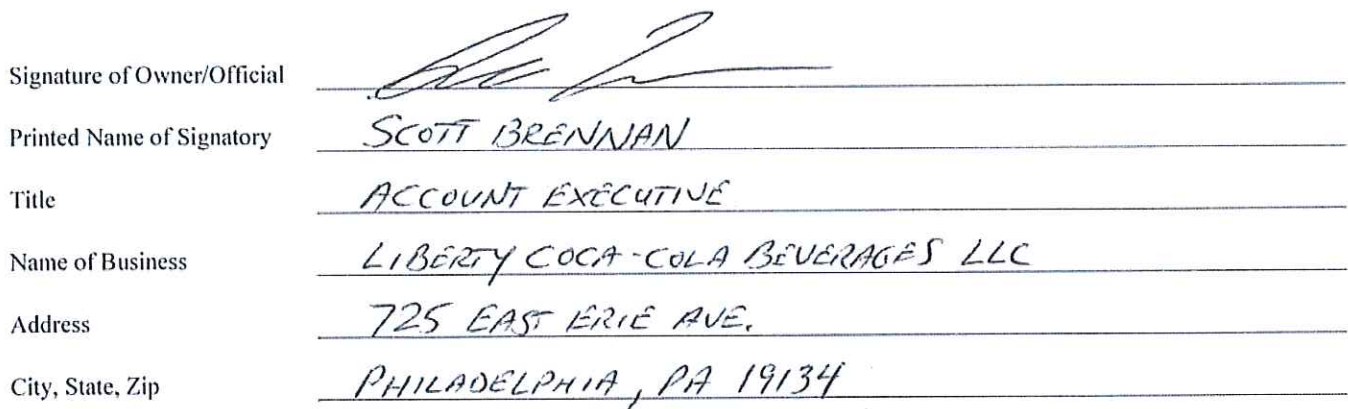 Signature of Owner/Official
Printed Name of Signatory SCOTT BRENNAN
Title ACCOUNT EXECUTIVE
Name of Business LIBERTY COCA-COLA BEVERAGES LLC
Address 725 EAST ERIE AVE.
City, State, Zip PHILADELPHIA, PA 19134